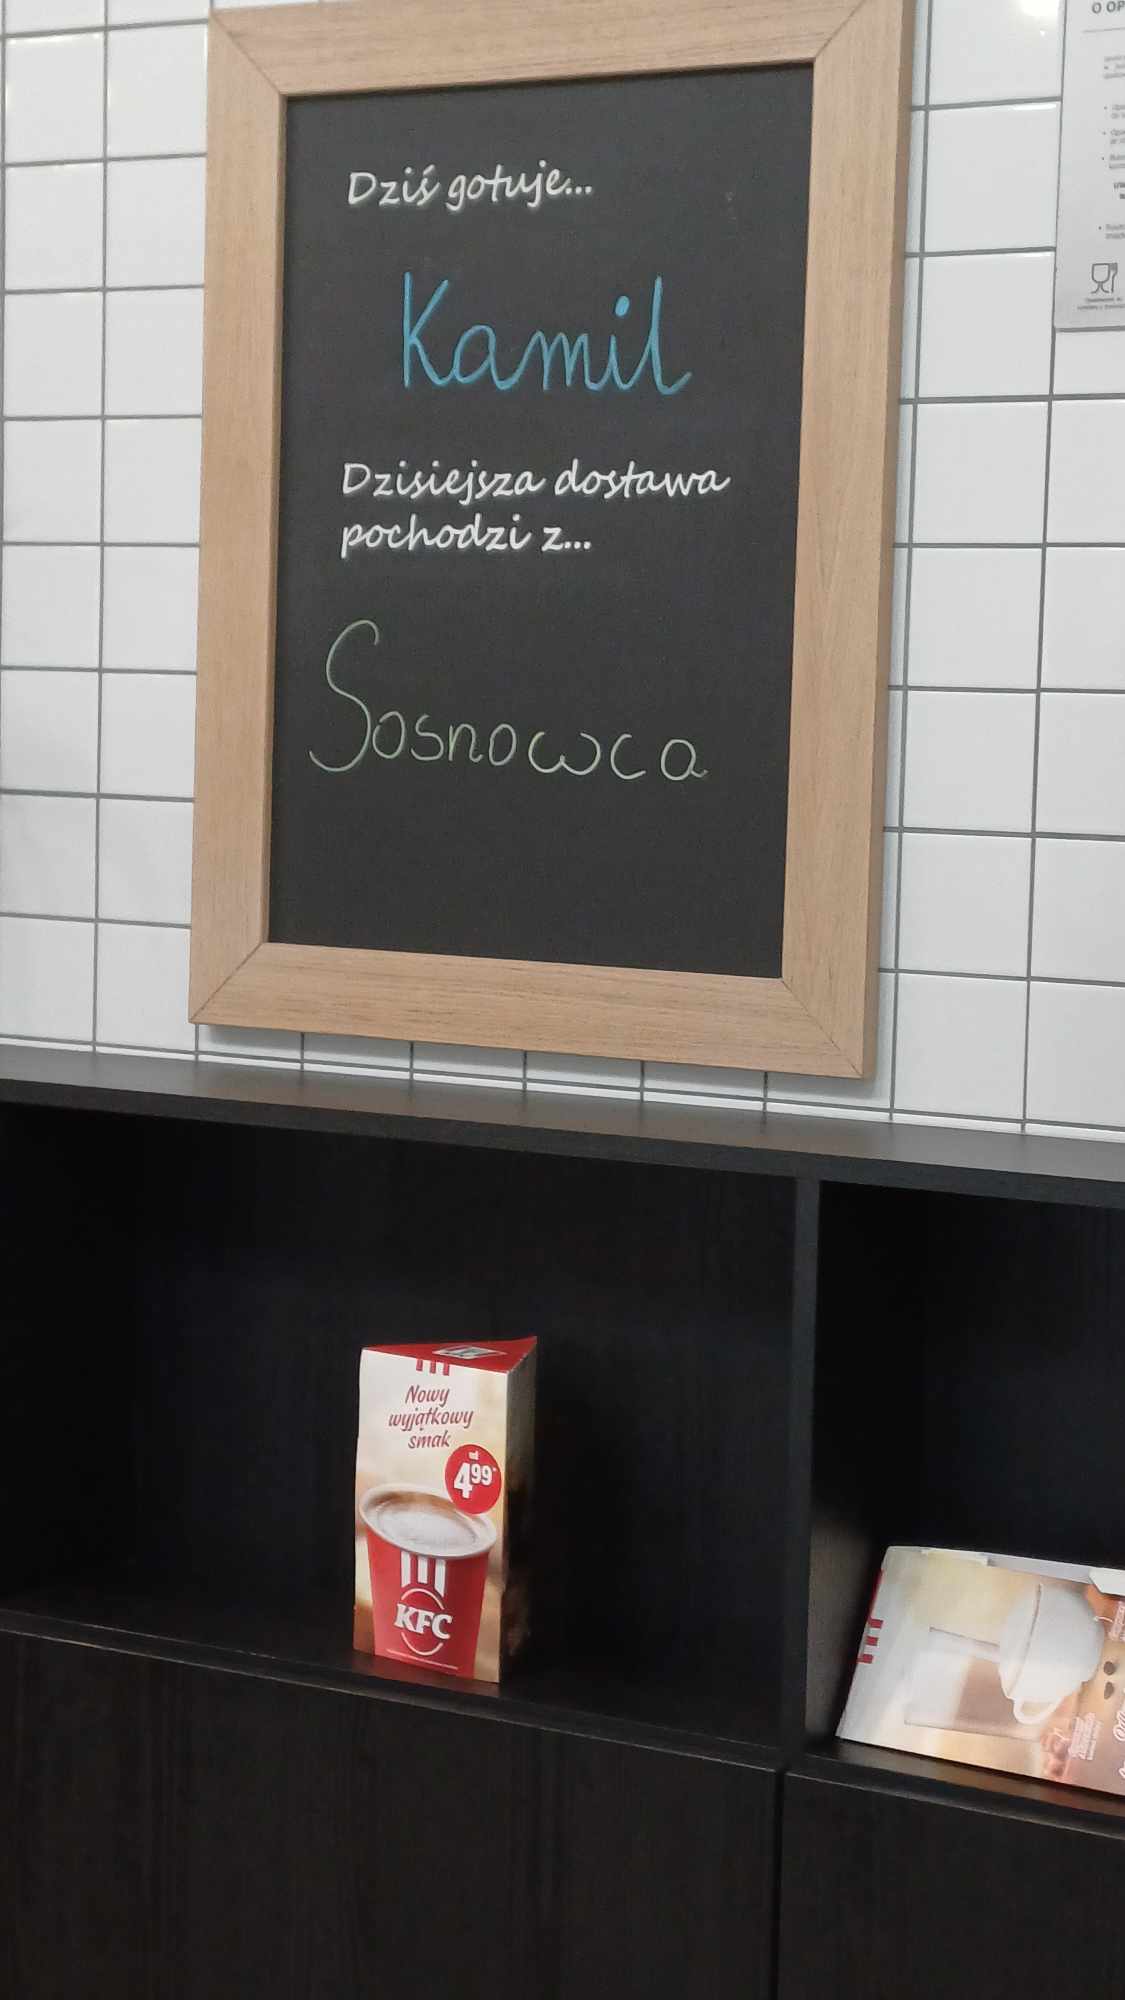 O OP
Dziś gotuje...
Kamil
Dzisiejsza dostawa
pochodzi z...
Sosnowca
Nowy
wyjątkowy
smak
od
4,99*
KFC